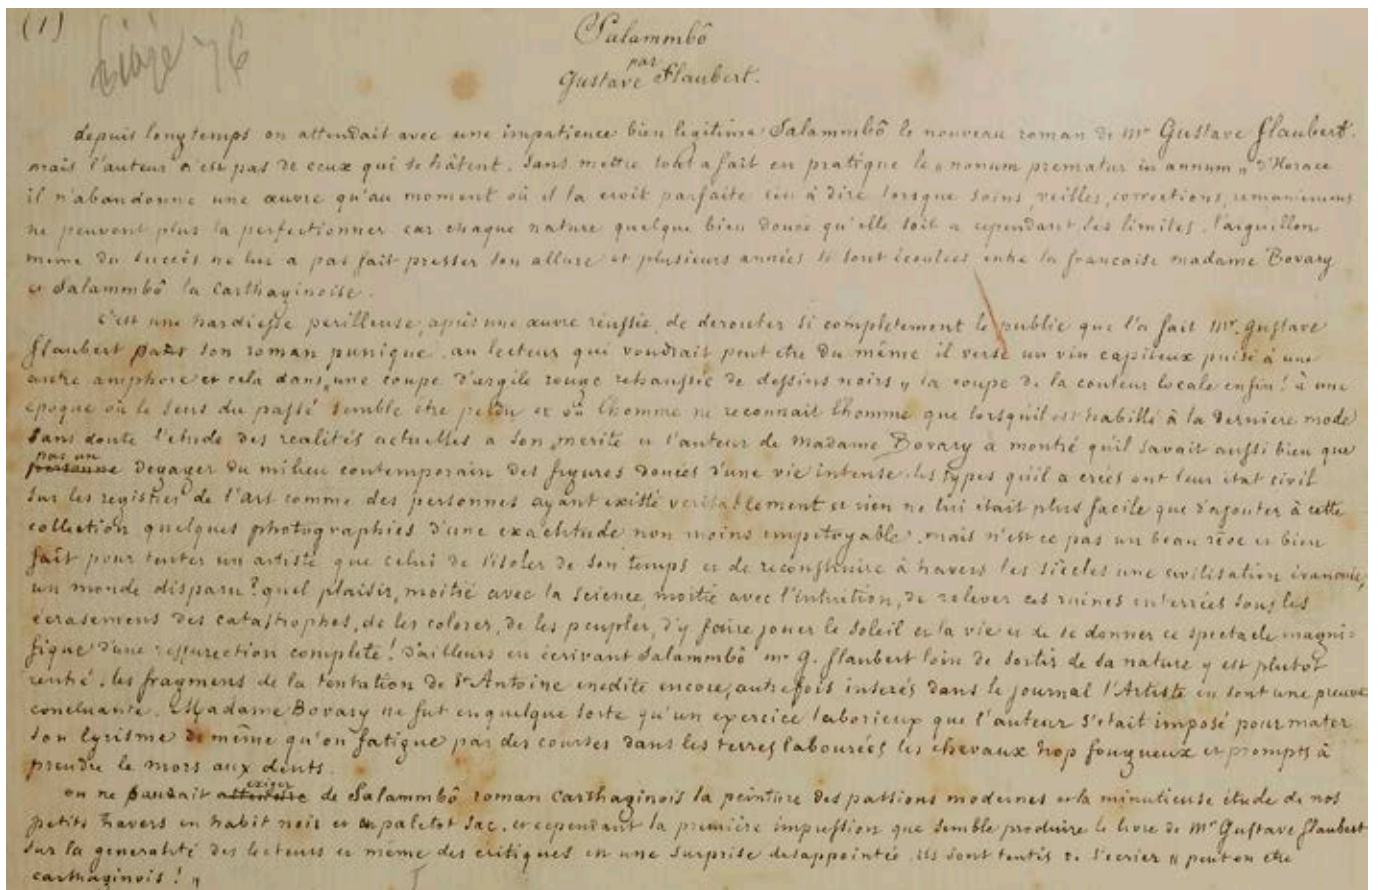 (1)
76
Salammbô
par
Gustave Flaubert.
depuis longtemps on attendait avec une impatience bien legitime Salammbô le nouveau roman de mr Gustave Flaubert.
mais l'auteur n'est pas de ceux qui se hâtent. Sans mettre tout a fait en pratique le „nonum prematur in annum„ d'Horace
il n'abandonne une œuvre qu'au moment où il la croit parfaite c'est à dire lorsque soins, veilles, corrections, remaniemens
ne peuvent plus la perfectionner car chaque nature quelque bien douée qu'elle soit a cependant ses limites. l'aiguillon
même du succès ne lui a pas fait presser son allure et plusieurs années se sont écoulées entre la francaise madame Bovary
et Salammbô la carthaginoise.
c'est une hardiesse perilleuse, après une œuvre réussie, de derouter si completement le public que l'a fait Mr. Gustave
Flaubert par son roman punique. au lecteur qui voudrait peut etre du même il verse un vin capiteux puisé à une
autre amphore et cela dans une coupe d'argile rouge rehaussée de dessins noirs „ la coupe de la couleur locale enfin! à une
époque où le sens du passé semble être perdu et où l'homme ne reconnait l'homme que lorsqu'il est habillé à la derniere mode
sans doute l'etude des realités actuelles a son merite et l'auteur de Madame Bovary à montré qu'il savait aussi bien que
pas un
personne degager du milieu contemporain des figures douées d'une vie intense. les types qu'il a créés ont leur etat civil
sur les registres de l'art comme des personnes ayant existé veritablement et rien ne lui etait plus facile que d'ajouter à cette
collection quelques photographies d'une exactitude non moins impitoyable. mais n'est ce pas un beau rêve et bien
fait pour tenter un artiste que celui de s'isoler de son temps et de reconstruire à travers les siècles une civilisation évanouie,
un monde disparu? quel plaisir, moitié avec la science, moitié avec l'intuition, de relever ces ruines enterrées sous les
écrasemens des catastrophes, de les colorer, de les peupler, d'y faire jouer le soleil et la vie et de se donner ce spectacle magni-
fique d'une resurrection complete! d'ailleurs en écrivant Salammbô mr G. flaubert loin de sortir de sa nature y est plutot
rentré. les fragmens de la tentation de St Antoine inedite encore, autrefois insérés dans le journal l'Artiste en sont une preuve
concluante. Madame Bovary ne fut en quelque sorte qu'un exercice laborieux que l'auteur s'etait imposé pour mater
son lyrisme de même qu'on fatigue par des courses dans les terres labourées les chevaux trop fougueux et prompts à
prendre le mors aux dents.
exiger
on ne pouvait attendre de Salammbô roman carthaginois la peinture des passions modernes et la minutieuse étude de nos
petits travers en habit noir et en paletot sac. et cependant la première impression que semble produire le livre de Mr Gustave flaubert
sur la generalité des lecteurs et même des critiques est une surprise desappointée. ils sont tentés de s'ecrier „ peut on etre
carthaginois! „